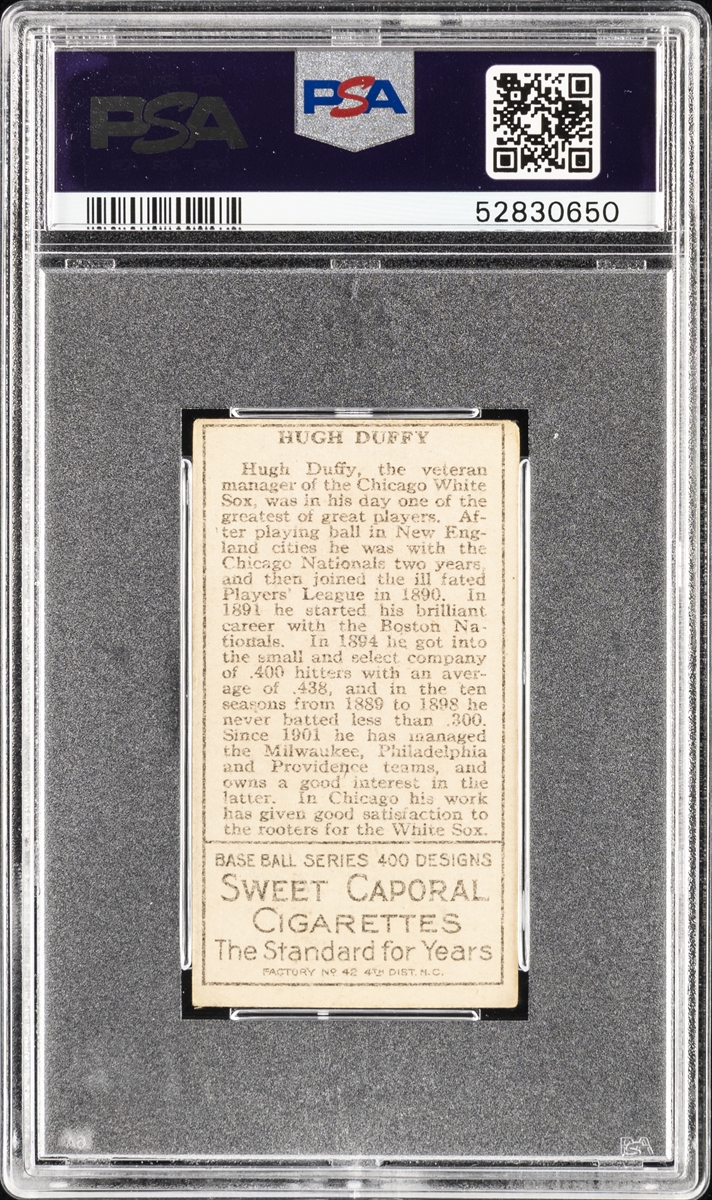 PSA
PSA
52830650
HUGH DUFFY
Hugh Duffy, the veteran
manager of the Chicago White
Sox, was in his day one of the
greatest of great players. Af-
ter playing ball in New Eng-
land cities he was with the
Chicago Nationals two years,
and then joined the ill fated
Players' League in 1890. In
1891 he started his brilliant
career with the Boston Na-
tionals. In 1894 he got into
the small and select company
of .400 hitters with an aver-
age of .438, and in the ten
seasons from 1889 to 1898 he
never batted less than .300.
Since 1901 he has managed
the Milwaukee, Philadelphia
and Providence teams, and
owns a good interest in the
latter. In Chicago his work
has given good satisfaction to
the rooters for the White Sox.
BASE BALL SERIES 400 DESIGNS
SWEET CAPORAL
CIGARETTES
The Standard for Years
FACTORY Nº 42 4TH DIST. N.C.
PSA